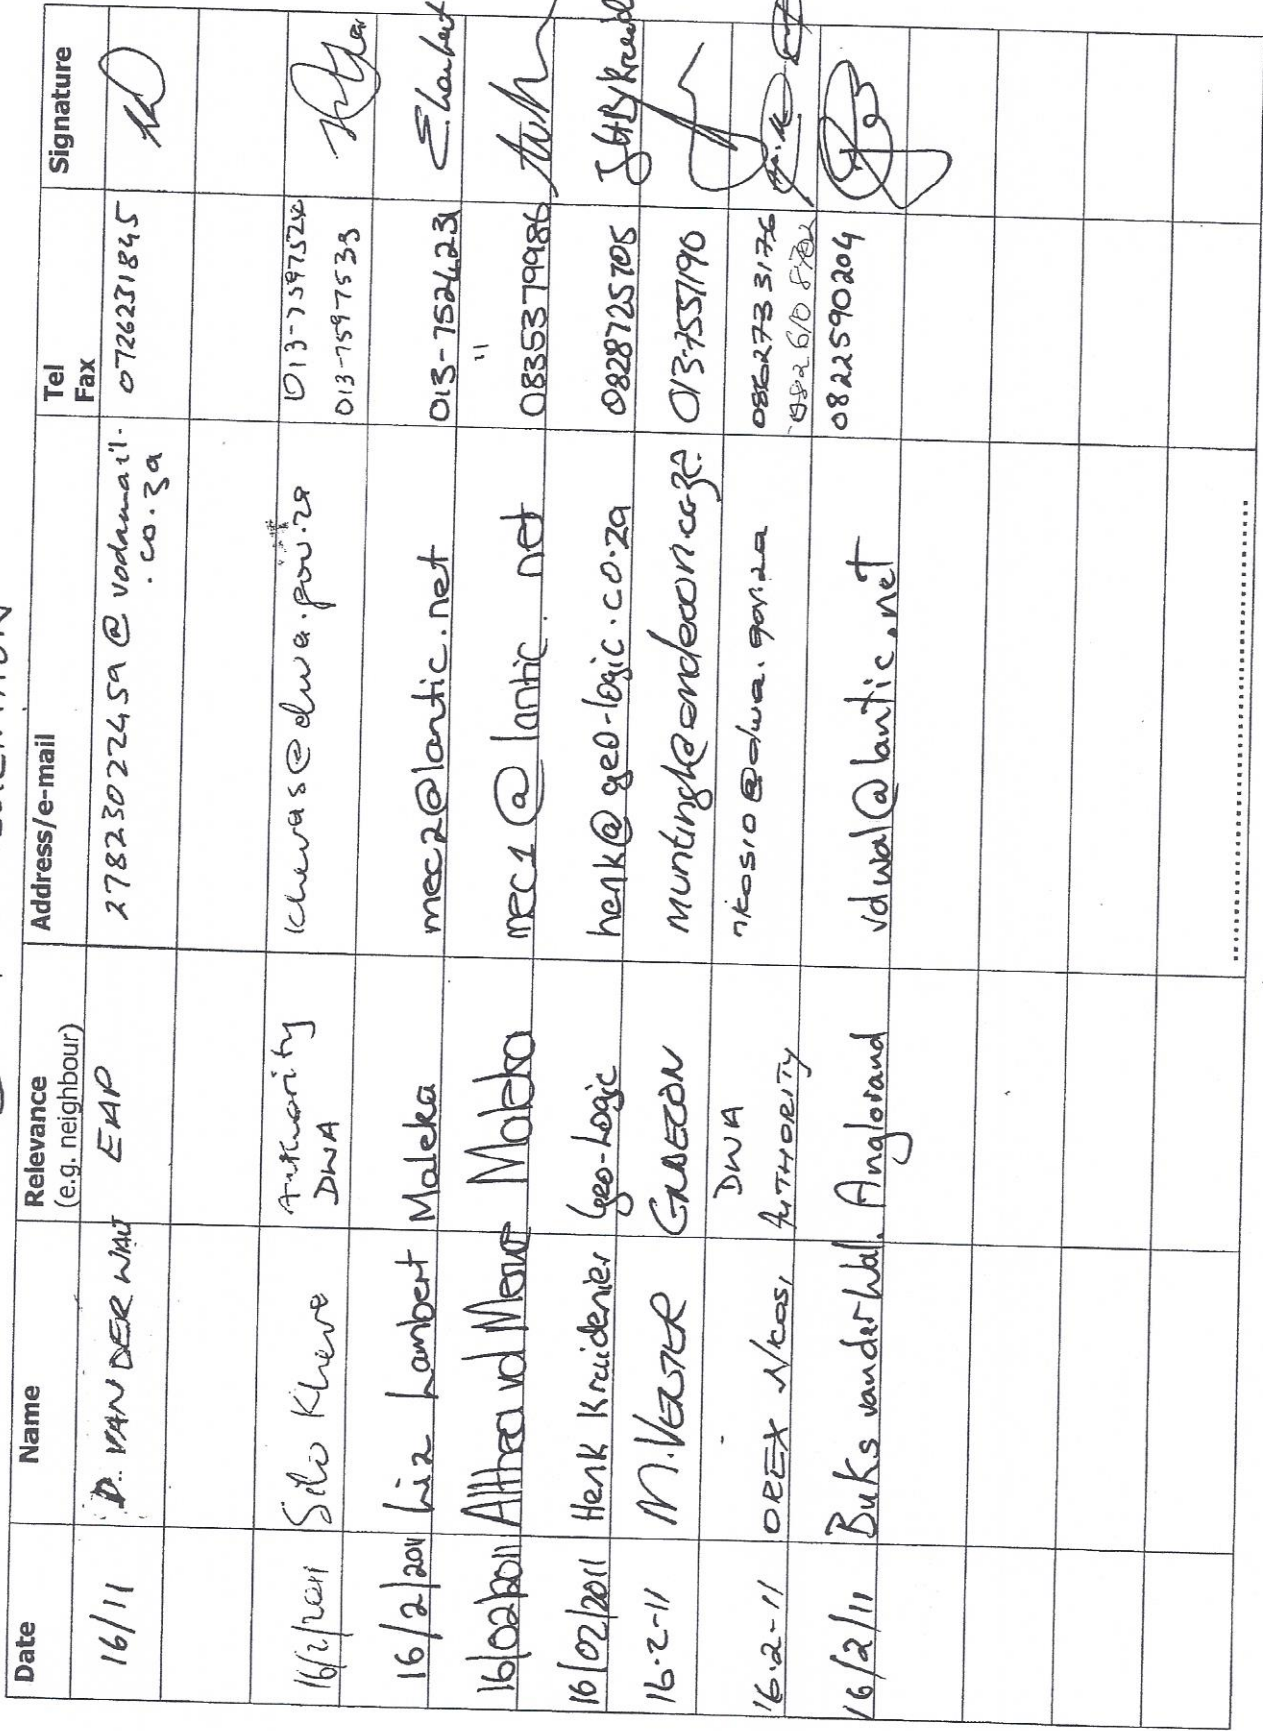 Date Name Relevance (e.g. neighbour) Address/e-mail Tel Fax Signature
16/11 D. VAN DER WALT EAP 2782302245a@vodamail.co.za 0726231845
16/2/2011 Silo Kheva Authority DWA khevas@dwa.gov.za 013-7597524 013-7597533
16/2/2011 Liz Lambert Maleka mec2@lantic.net 013-7524231 E. Lambert
16/02/2011 Althea vd Merwe Maleka mec1@lantic.net " 0835379986
16/02/2011 Henk Kruidenier Geo-Logic henk@geo-logic.co.za 0828725705
16-2-11 M. VERSTER 0137557190
16-2-11 OREX Nkosi DWA AUTHORITY nkosio@dwa.gov.za
16/2/11 Buks vander Wal. Anglorand vdwal@lantic.net 0822590204